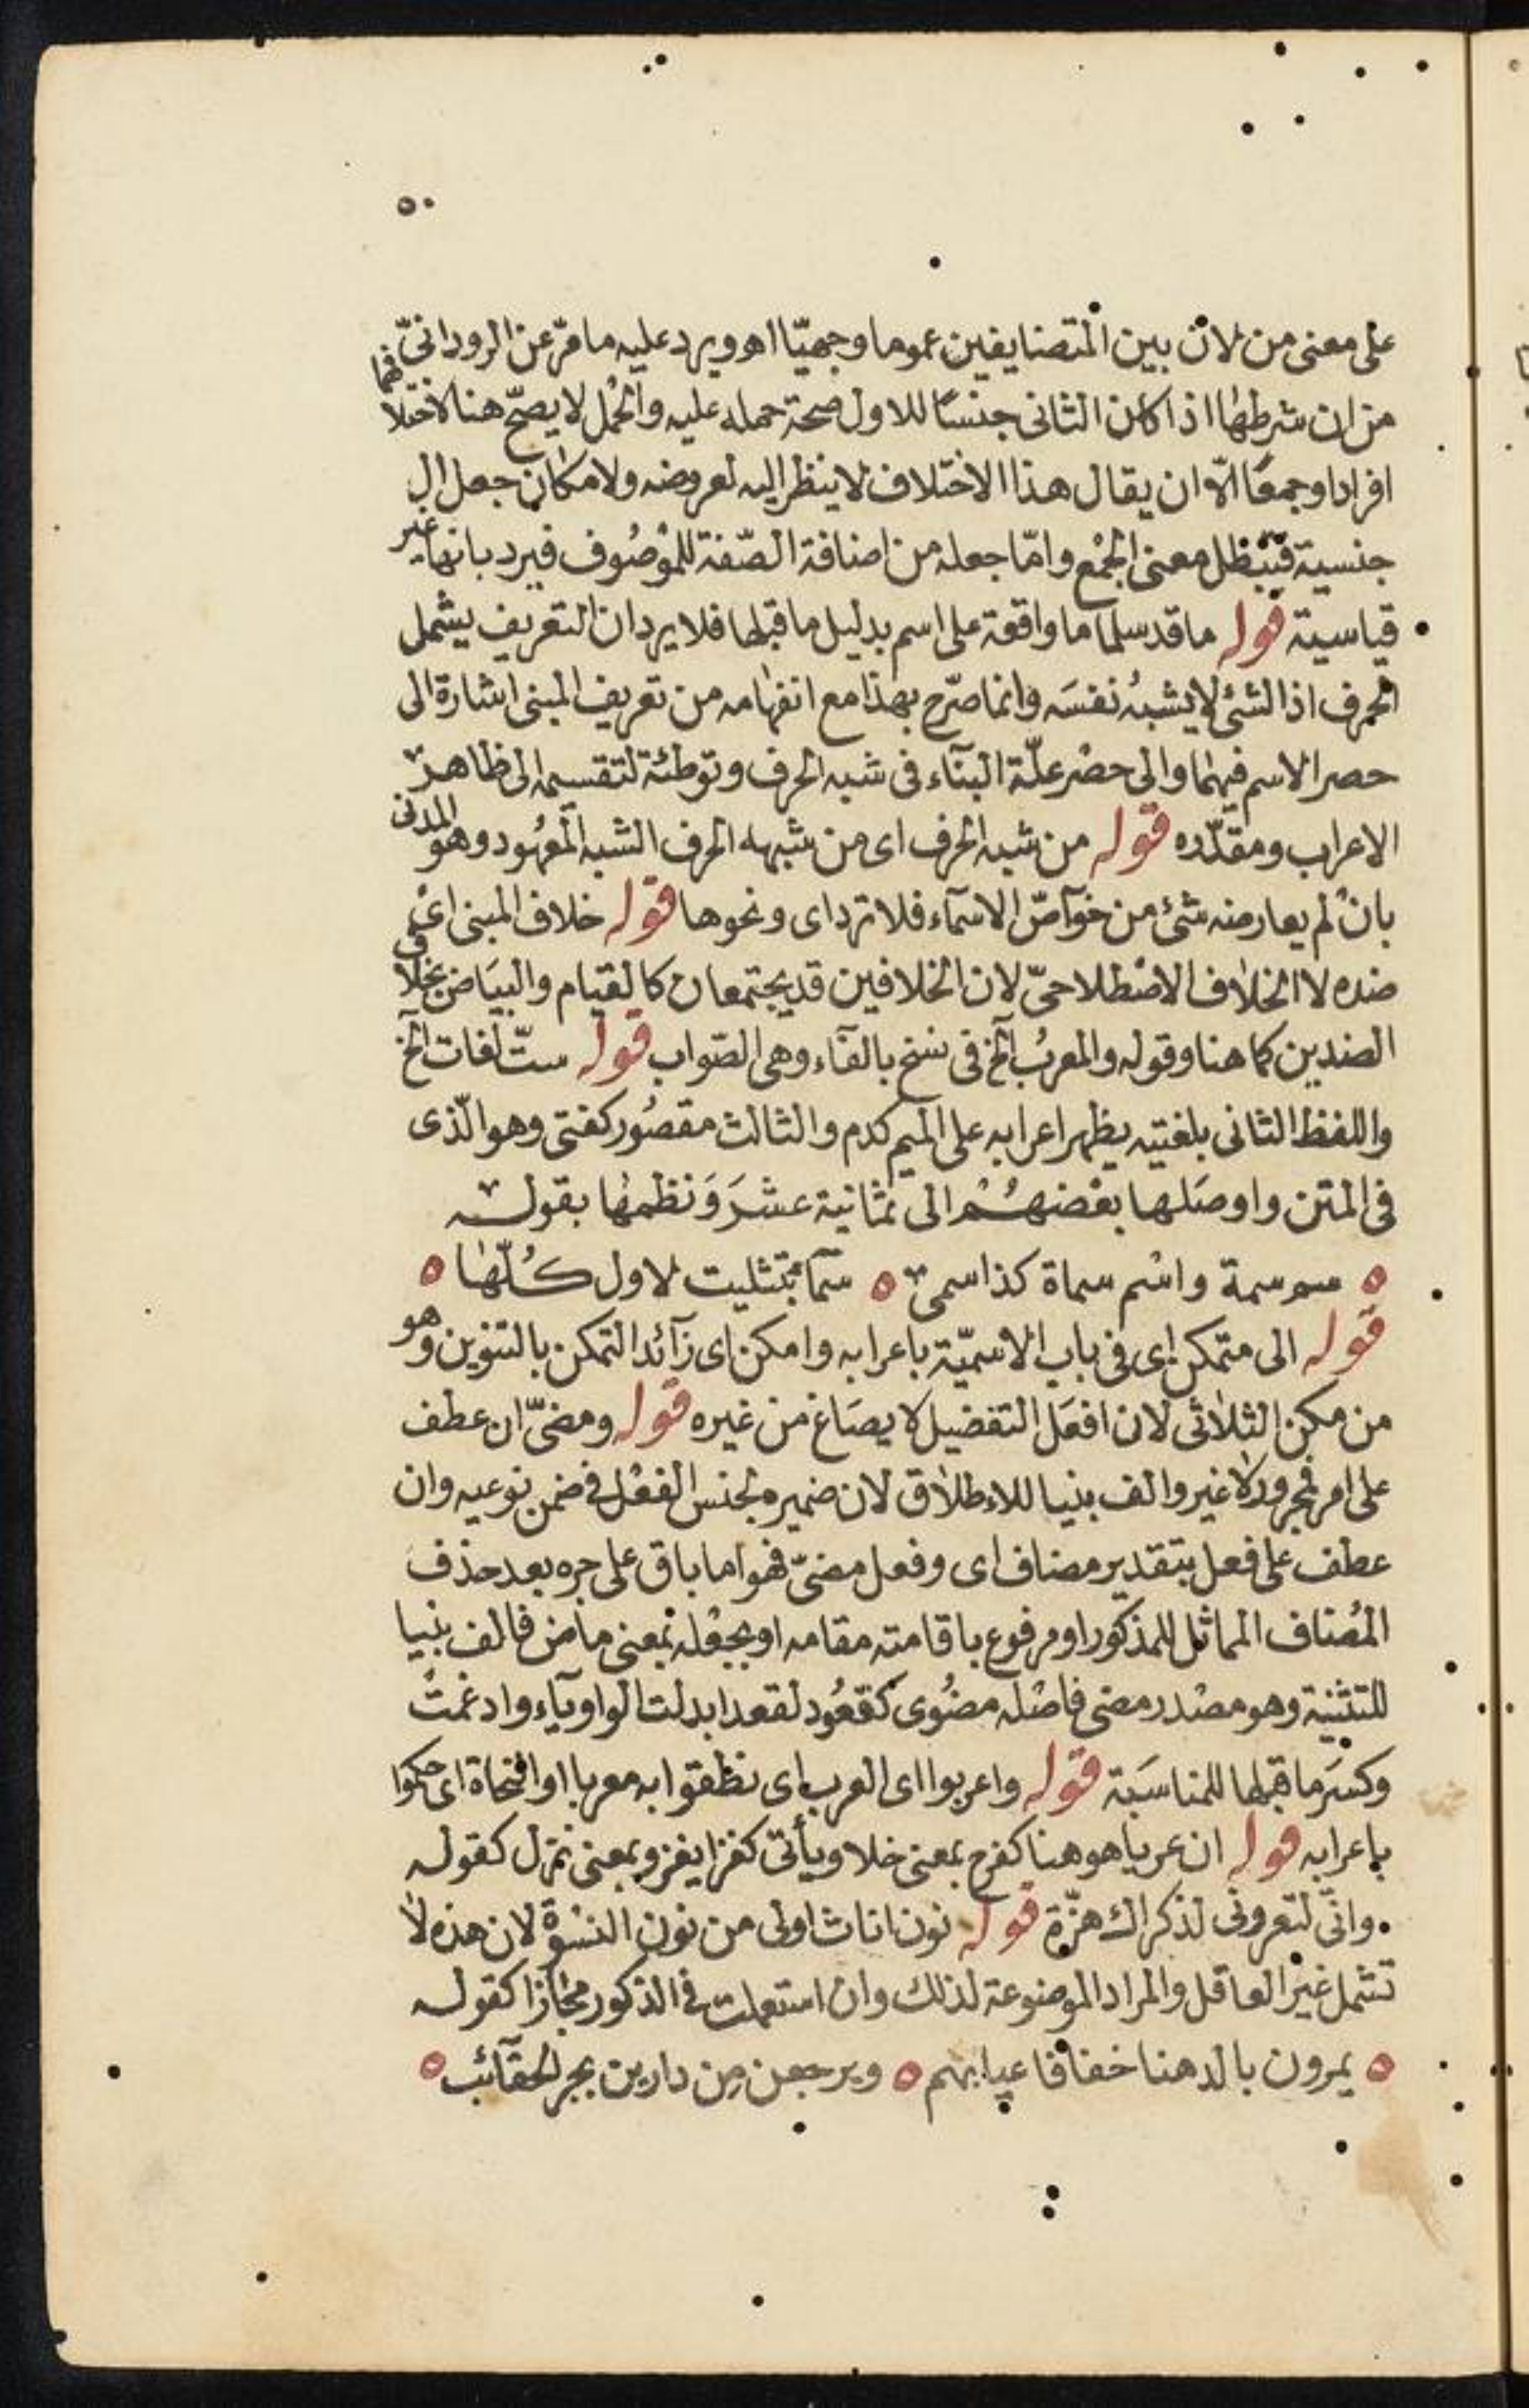 ٥٠
على معنى من لان بين المتضايفين عموما وجهيّا اهو ويرد عليه مامرّ عن الرودانىّ
من ان شرطها اذا كان الثانى جنسًا للاول صحة حمله عليه والحمل لا يصحّ هنا لاختلافهما
افرادا وجمعًا الّا ان يقال هذا الاختلاف لا ينظر اليه لعروضه ولامكان جعل ال
جنسية فيبطل معنى الجمْع وامّا جعله من اضافة الصّفة للموْصُوف فيرد بانها غير
قياسية قوله ما قد سلما ما واقعة على اسم بدليل ما قبلها فلا يرد ان التعريف يشمل
الحرف اذ الشئ لا يشبهُ نفسَه وانما صرّح بهذا مع انفهامه من تعريف المبنى اشارة الى
حصر الاسم فيهما والى حصْر علّة البنآء فى شبه الحرف وتوطئة لتقسيمه الى ظاهر
الاعراب ومقدّره قوله من شبه الحرف اى من شبهه الحرف الشبه المعهود وهو المدنى
بانْ لم يعارضه شئ من خوآصّ الاسمآء فلا ترد اى ونحوها قوله خلاف المبنى اىْ
ضده لا الخلاف الاصْطلاحىّ لان الخلافين قد يجتمعان كالقيام والبيَاض بخلاف
الضدين كما هنا وقوله والمعربُ الخ فى نسخ بالفآء وهى الصّواب قوله ستّ لغات الخ
واللفظ الثانى بلغتيه يظهر اعرابه على الميم كدم والثالث مقصُور كفتى وهو الّذى
فى المتن واوصَلها بعْضهُمْ الى ثمَانية عشَرَ وَنظمها بقوله
سم سمة واسْم سماة كذا سمى سمآ بتثليت لاول كُلّها
قوله الى متمكن اى فى باب الاسميّة باعرابه وامكن اى زآئد التمكن بالتنوين وهو
من مكن الثلاثى لان افعَل التفضيل لا يصَاغ من غيره قوله ومضىّ ان عطف
على امر فمجرور لا غير والف بنيا للاطلاق لان ضميره لجنس الفعْل فى ضمن نوعيه وان
عطف على فعل بتقدير مضاف اى وفعل مضىّ فهو اما باق على جره بعد حذف
المُضاف المماثل للمذكور او مرفوع باقامته مقامه او بجعْله بمعنى ماض فالف بنيا
للتثنية وهو مصْدر مضى فاصْله مضُوى كقعُود لقعد ابدلت الواو يآء وادغمتْ
وكسَر ما قبلها للمناسَبة قوله واعربوا اى العرب اى نطقوا به معربا او النحاة اى حكموا
باعرابه قوله ان عريا هو هنا كفرح بمعنى خلا ويأتى كغزا يغزو بمعنى نزل كقوله
وانّى لتعرونى لذكراك هزّة قوله نون اناث اولى من نون النسْوة لان هذه لا
تشمل غيْر العاقل والمراد الموضوعة لذلك وان استعملت فى الذكور مجازا كقوله
يمرون بالدهنا خفافا عيابهم ويرجعن من دارين بجر الحقآئب